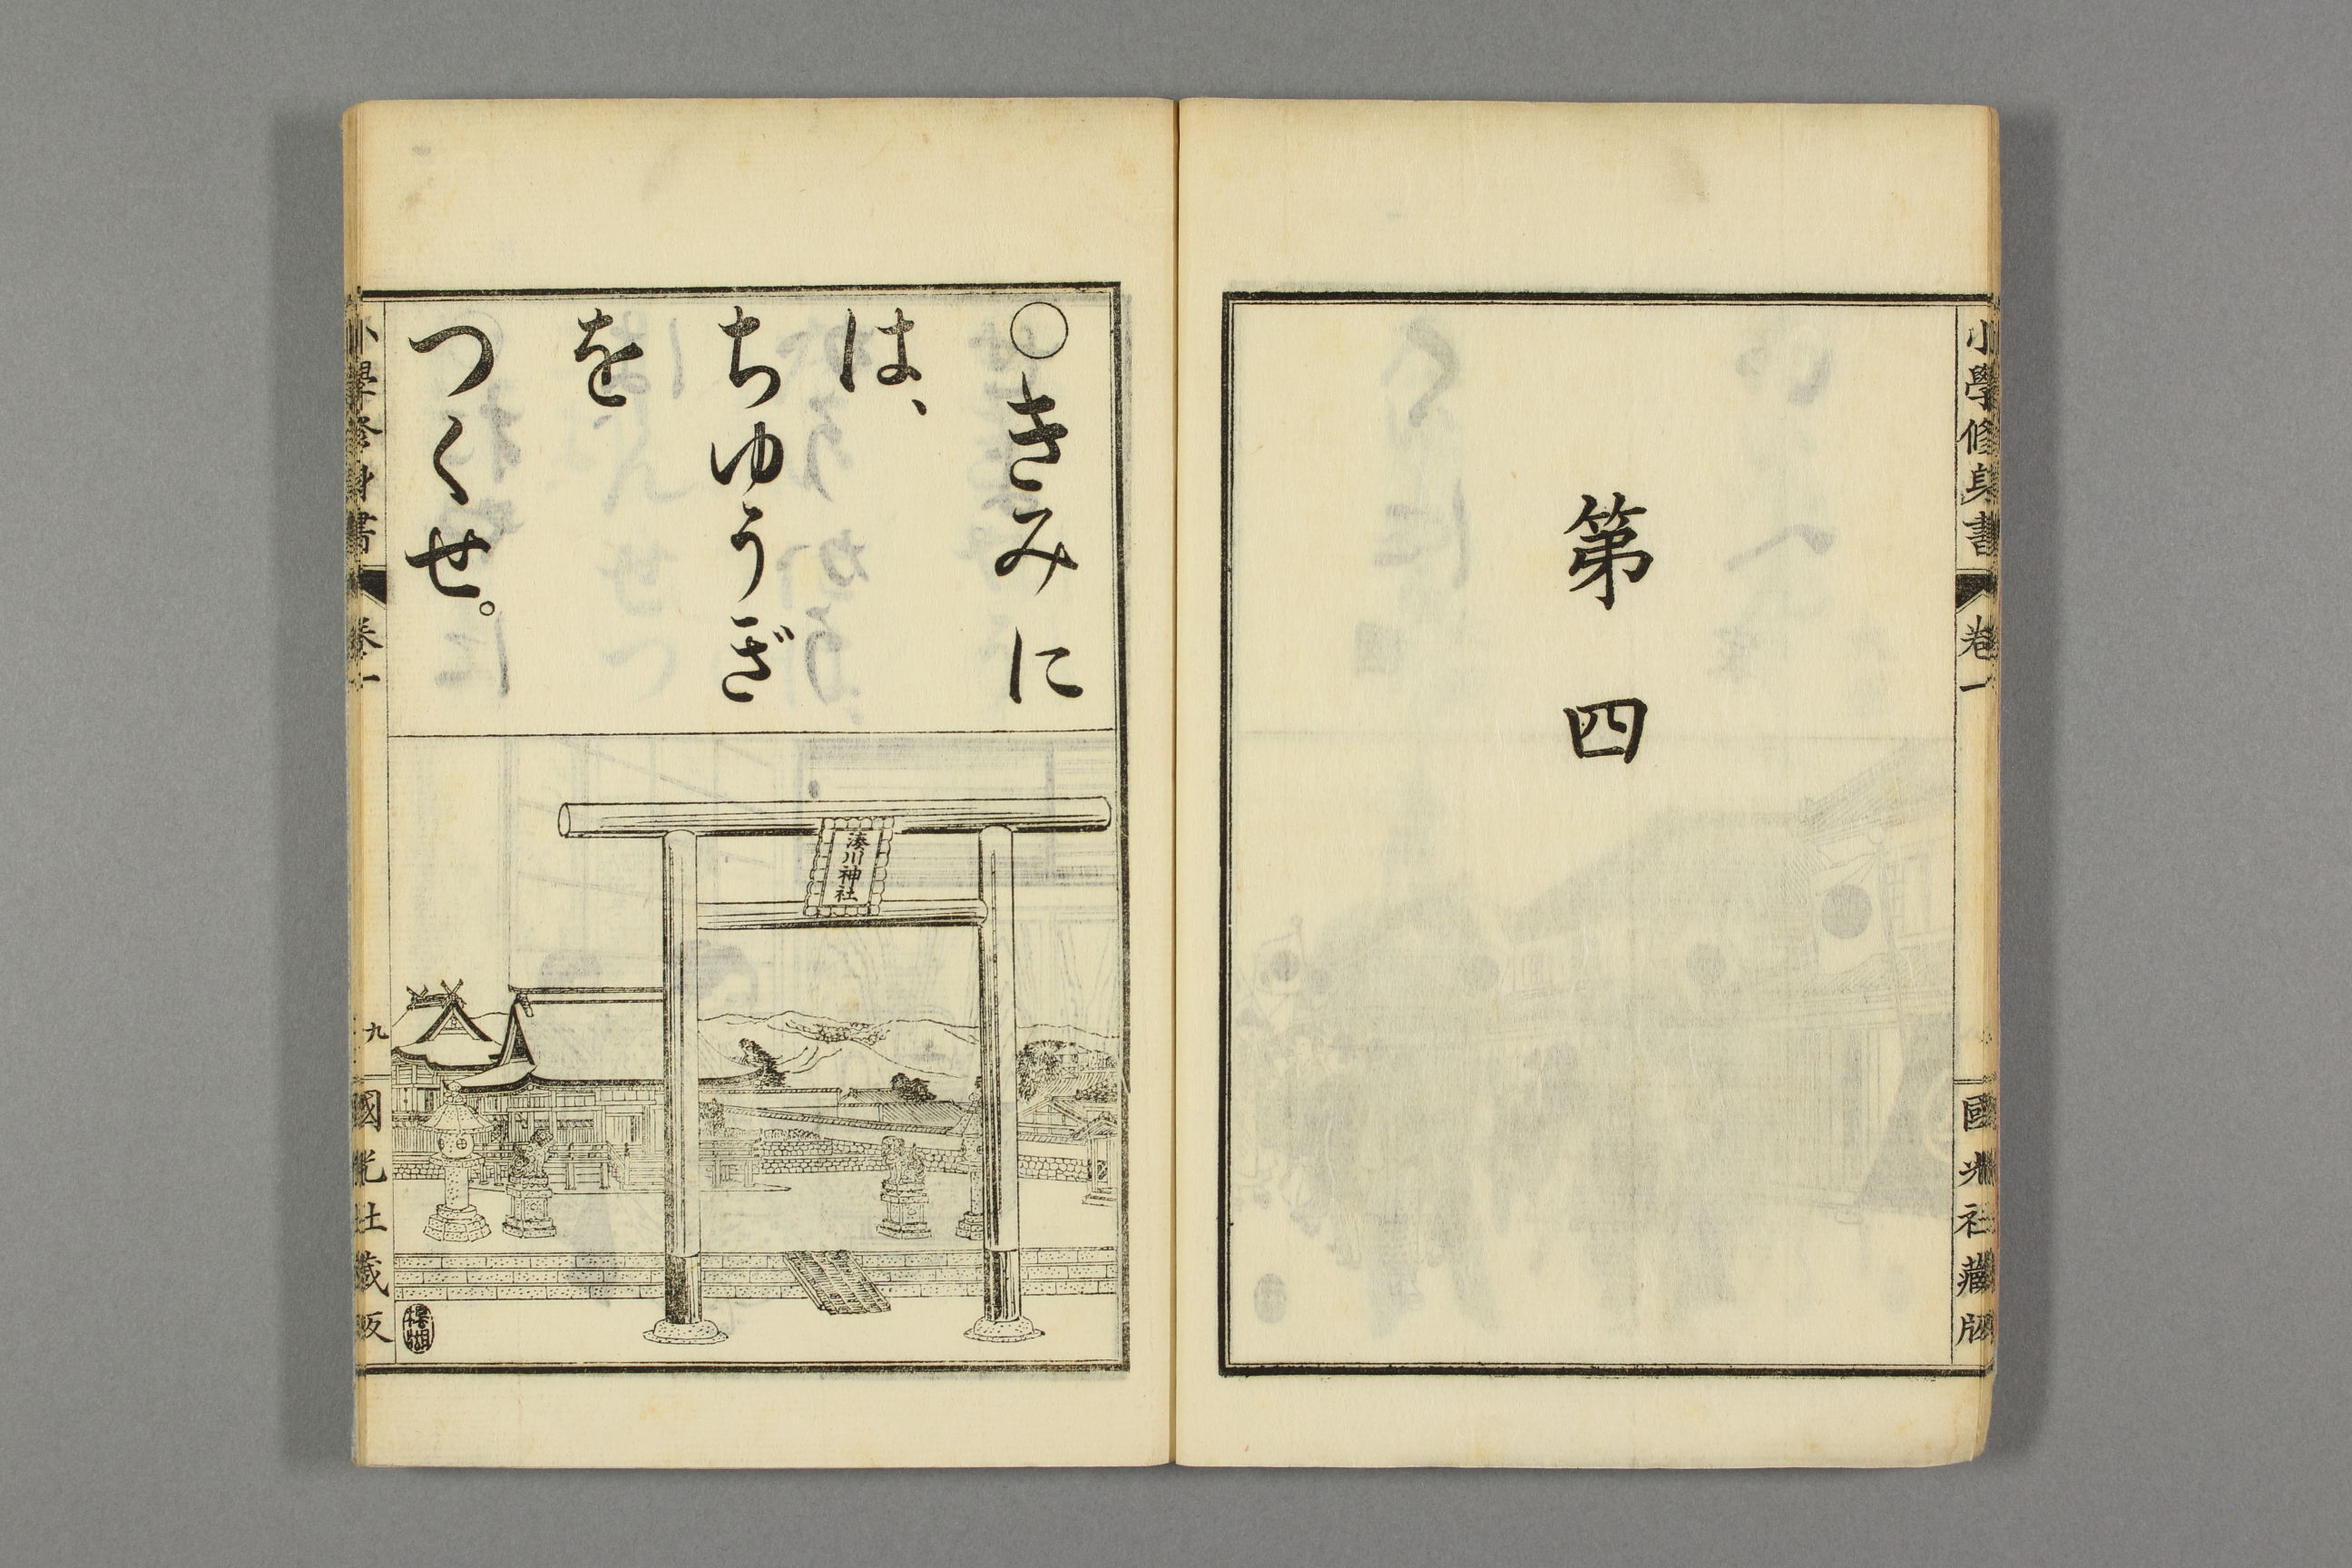 小學修身書
卷一
國光社藏版
第四
○きみに
は、
ちゆうぎ
を
つくせ。
湊川神社
小學修身書
卷一
九
國光社藏版